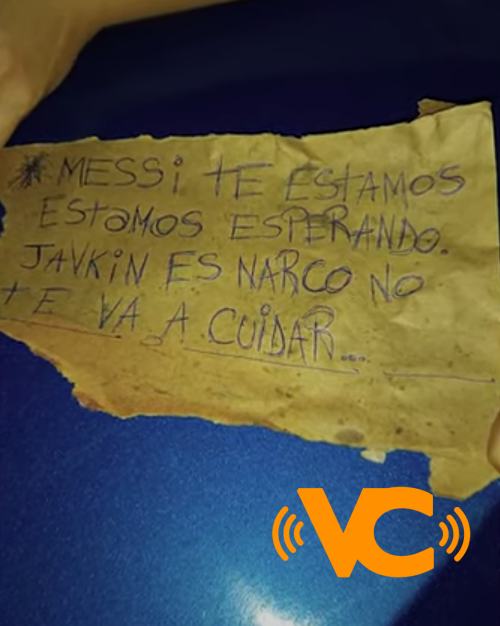 * MESSi tE EStAMOS
EStaMOS ESPERANDO.
JAVKiN ES NARCO NO
tE VA A CUiDAR...
VC